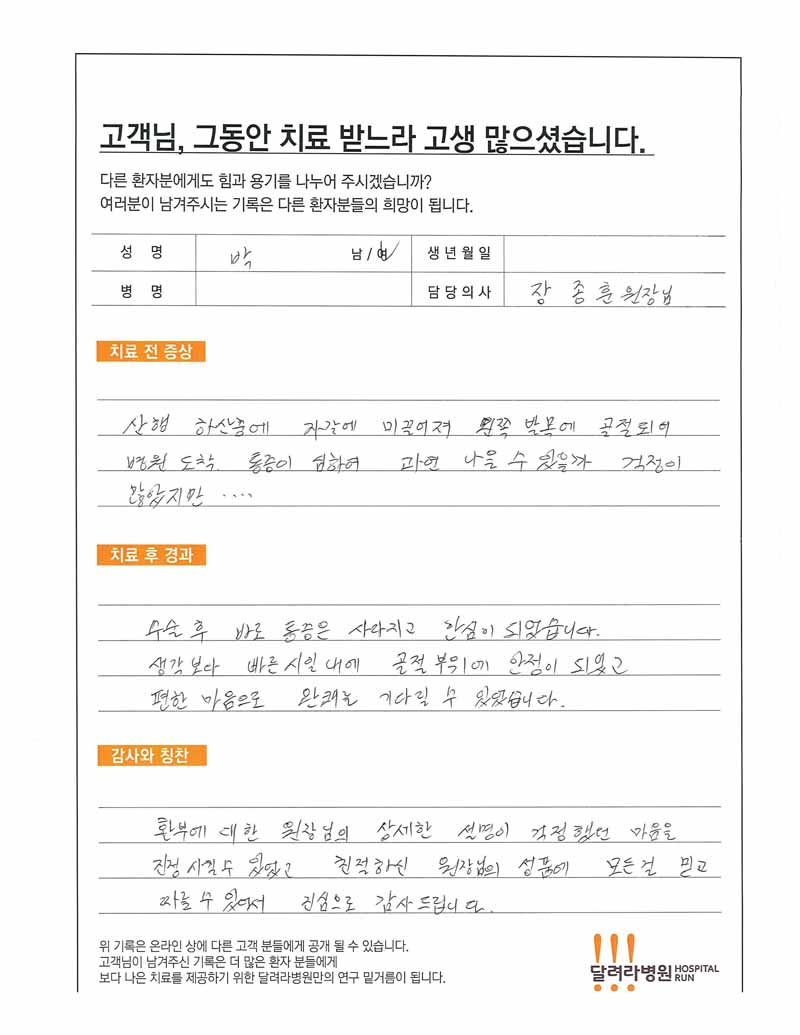 고객님, 그동안 치료 받느라 고생 많으셨습니다.
다른 환자분에게도 힘과 용기를 나누어 주시겠습니까?
여러분이 남겨주시는 기록은 다른 환자분들의 희망이 됩니다.
성 명 박 남 / 여 생년월일
병 명 담당의사 장종훈 원장님
치료 전 증상
산행 하산중에 자갈에 미끌어져 왼쪽 발목에 골절되어
병원 도착. 통증이 심하여 과연 나을 수 있을까 걱정이
많았지만 ....
치료 후 경과
수술 후 바로 통증은 사라지고 안심이 되었습니다.
생각보다 빠른 시일 내에 골절 부위에 안정이 되었고
편한 마음으로 완쾌를 기다릴 수 있었습니다.
감사와 칭찬
환부에 대한 원장님의 상세한 설명이 걱정했던 마음을
진정 시킬 수 있었고 친절하신 원장님의 성품에 모든걸 믿고
따를 수 있어서 진심으로 감사드립니다.
위 기록은 온라인 상에 다른 고객 분들에게 공개 될 수 있습니다.
고객님이 남겨주신 기록은 더 많은 환자 분들에게
보다 나은 치료를 제공하기 위한 달려라병원만의 연구 밑거름이 됩니다.
달려라병원 HOSPITAL RUN